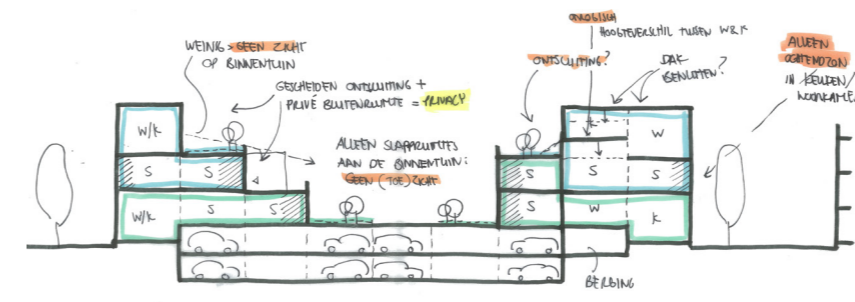 WEINIG > GEEN ZICHT
OP BINNENTUIN
GESCHEIDEN ONTSLUITING +
PRIVÉ BUITENRUIMTE = PRIVACY
ALLEEN SLAAPRUIMTES
AAN DE BINNENTUIN:
GEEN (TOE)ZICHT
ONLOGISCH
HOOGTEVERSCHIL TUSSEN W&K
ONTSLUITING?
DAK
BENUTTEN?
ALLEEN
OCHTENDZON
IN KEUKEN/
W/K
S S
W/K S S
K
W
S S S
S W K
BERGING